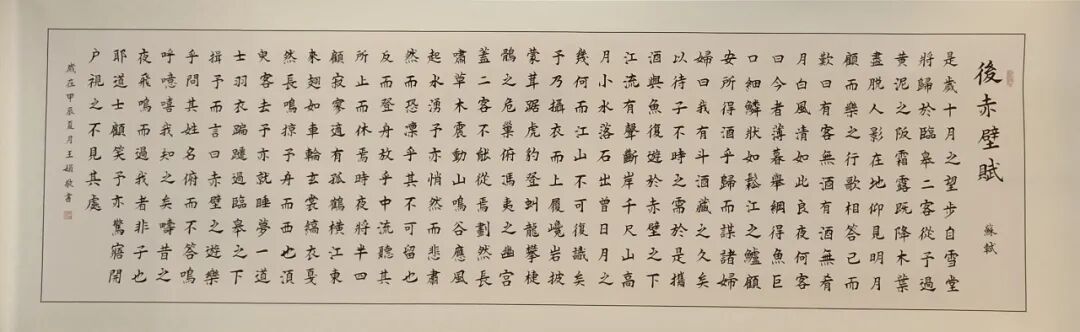 後赤壁賦
蘇軾
是歲十月之望步自雪堂
將歸於臨皋二客從予過
黃泥之阪霜露既降木葉
盡脫人影在地仰見明月
顧而樂之行歌相答已而
歎曰有客無酒有酒無肴
月白風清如此良夜何客
曰今者薄暮舉網得魚巨
口細鱗狀如鬆江之鱸顧
安所得酒乎歸而謀諸婦
婦曰我有斗酒藏之久矣
以待子不時之需於是攜
酒與魚復遊於赤壁之下
江流有聲斷岸千尺山高
月小水落石出曾日月之
幾何而江山不可復識矣
予乃攝衣而上履巉岩披
蒙茸踞虎豹登虯龍攀棲
鶻之危巢俯馮夷之幽宮
蓋二客不能從焉劃然長
嘯草木震動山鳴谷應風
起水湧予亦悄然而悲肅
然而恐凜乎其不可留也
反而登舟放乎中流聽其
所止而休焉時夜將半四
顧寂寥適有孤鶴橫江東
來翅如車輪玄裳縞衣戛
然長鳴掠予舟而西也須
臾客去予亦就睡夢一道
士羽衣蹁躚過臨皋之下
揖予而言曰赤壁之遊樂
乎問其姓名俯而不答嗚
呼噫嘻我知之矣疇昔之
夜飛鳴而過我者非子也
耶道士顧笑予亦驚寤開
戶視之不見其處
歲在甲辰夏月王娟敬書